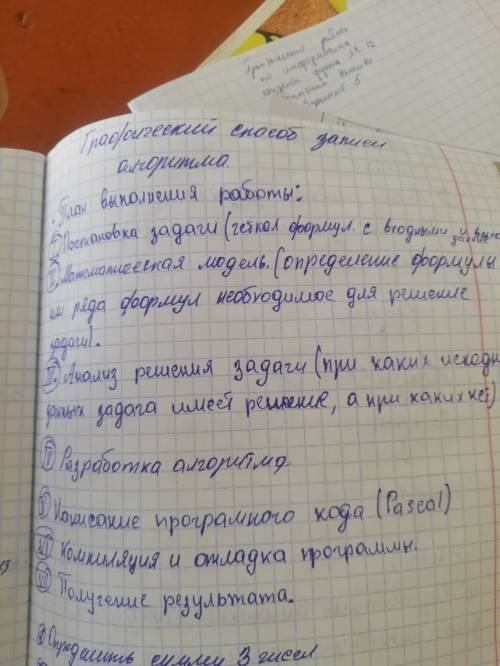 Практический работ
по информатике
группы
Вариант 5
Графический способ записи
алгоритма.
План выполнения работы:
I. Постановка задачи (четкая формул. с входными и
II. Математическая модель. (определение формулы
или ряда формул необходимое для решение
задачи).
III. Анализ решения задачи (при каких исходн
данных задача имеет решение, а при каких нет)
IV Разработка алгоритма
V Написание програмного кода (Pascal)
VI Компиляция и отладка программы.
VII Получение результата.
Определить сумму 3 чисел
13